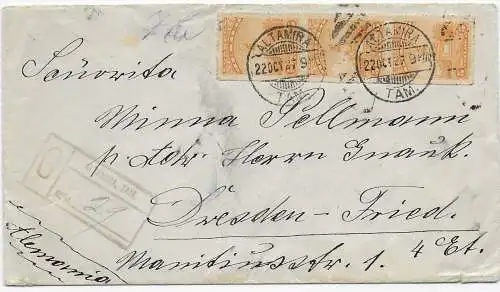 ALTAMIRA
22 OCT 27 9
TAM.
ALTAMIRA
22 OCT 27 9
TAM.
Señorita
Minna Pellmann
p. Adr. Herrn Gnauk.
Dresden-Fried.
Manitiusstr. 1. 4 Et.
Alemania
TAM.
29